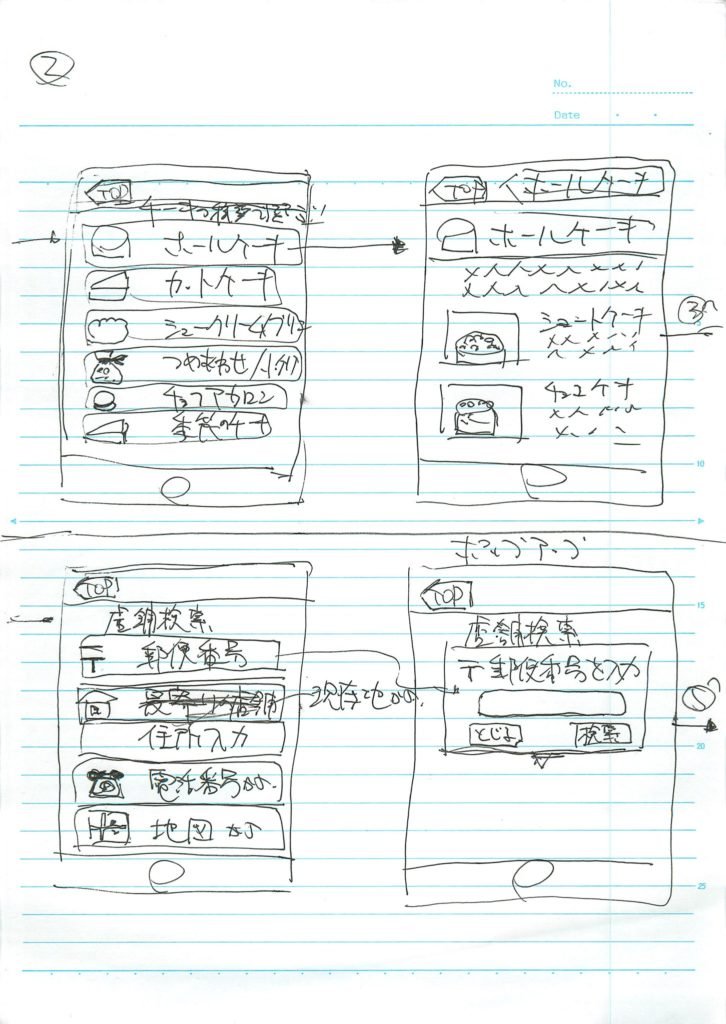 2
No.
Date
TOP
ケーキの種類で選ぶ
ホールケーキ
カットケーキ
シュークリーム/プリン
つめあわせ/
チョコ/マカロン
季節のケーキ
TOP
ホールケーキ
ホールケーキ
ショートケーキ
チョコケーキ
③へ
10
ポップアップ
15
TOP
店舗検索
郵便番号
現在地から
住所入力
電話番号から
地図から
TOP
店舗検索
〒郵便番号を入力
とじる
検索
20
25